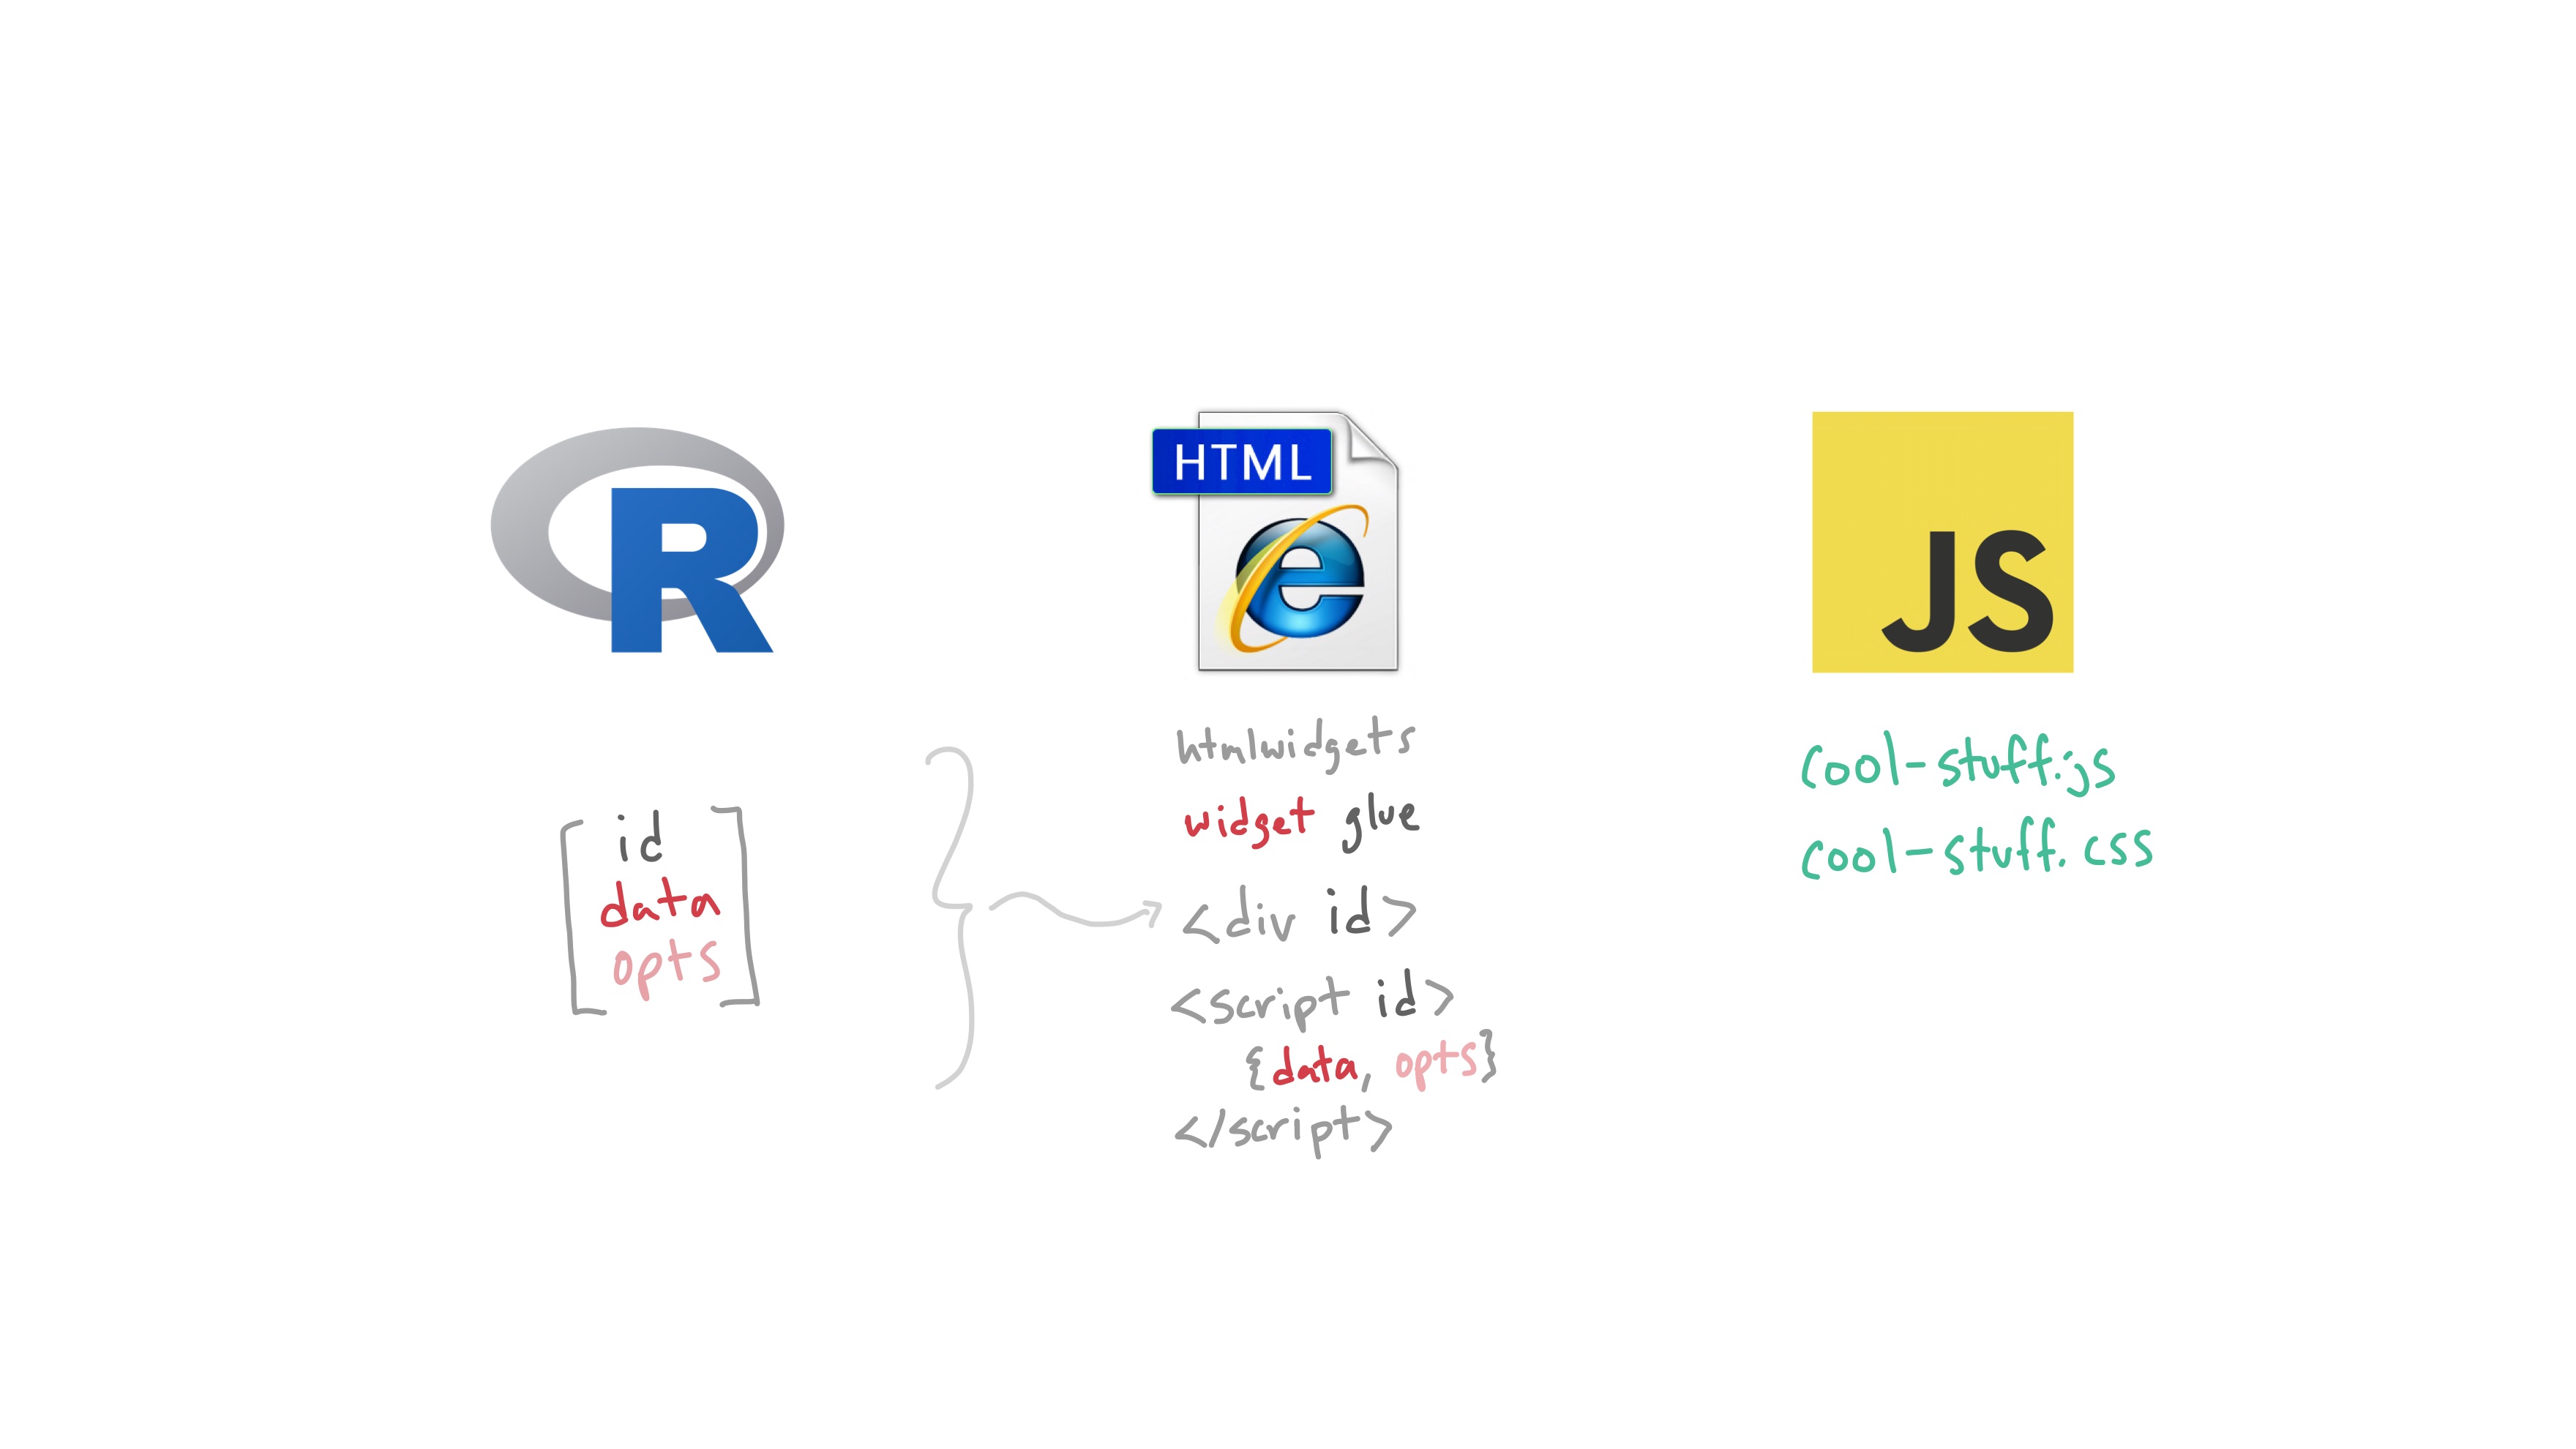 R
id
data
opts
HTML
e
htmlwidgets
widget glue
<div id>
<script id>
{data, opts}
</script>
JS
cool-stuff.js
cool-stuff.css